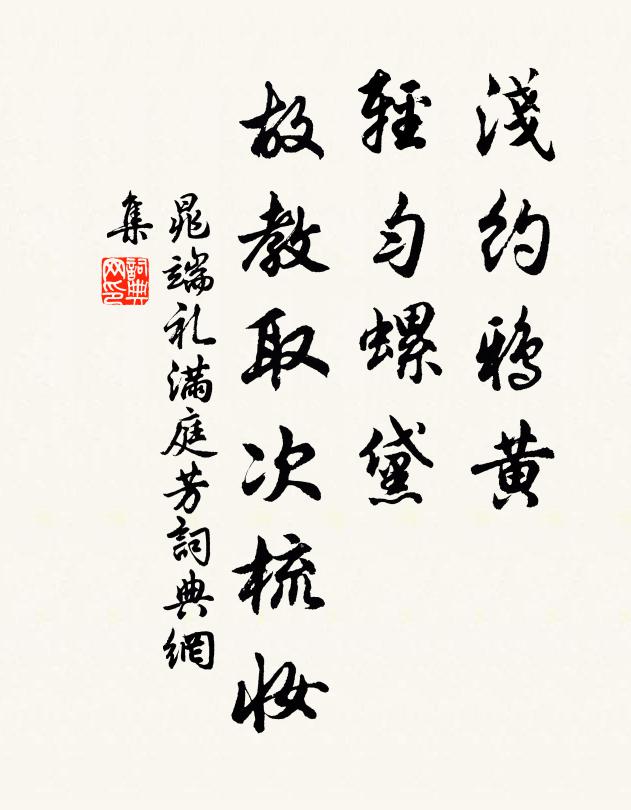 淺約鴉黃
輕勻螺黛
故教取次梳妝
晁端礼滿庭芳詞典網
集
詞典
网印